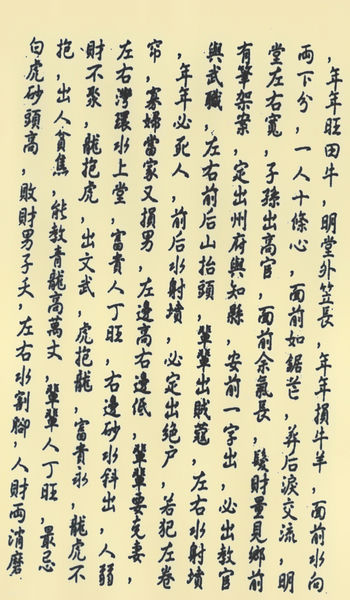 ，年年旺田牛，明堂外笠長，年年損牛羊，面前水向
兩下分，一人十條心，面前如鋸芒，井后淚交流，明
堂左右寬，子孫出高官，面前余氣長，發財量見鄉前
有筆架案，定出州府與知縣，安前一字出，必出教官
與武職，左右前后山抬頭，輩輩出賊蔻，左右水射墳
，年年必死人，前后水射墳，必定出绝户，若犯左卷
帘，寡婦當家又損男，左邊高右邊低，輩輩要克妻，
左右灣環水上堂，富貴人丁旺，右邊砂水斜出，人弱
財不聚，龍抱虎，出文武，虎抱龍，富貴永，龍虎不
抱，出人貧焦，能教青龍高萬丈，輩輩人丁旺，最忌
白虎砂頭高，敗財男子夭，左右水割腳，人財兩消磨